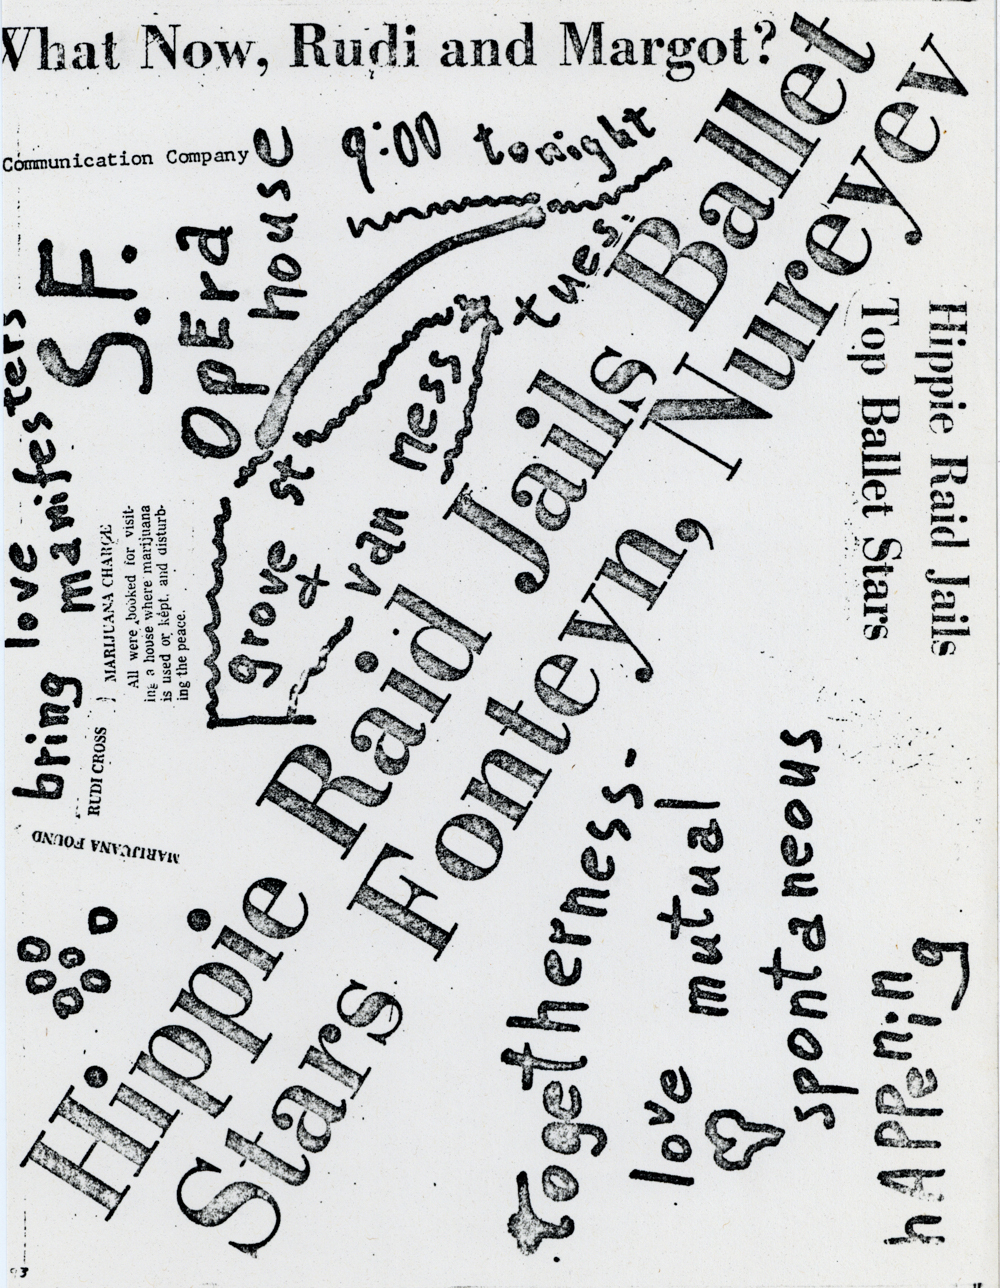 What Now, Rudi and Margot?
Communication Company
9:00 tonight
tues.
S.F.
OpEra
house
grove st
+
van ness
bring love
manifesters
MARIJUANA CHARGE
All were booked for visit-
ing a house where marijuana
is used or kept, and disturb-
ing the peace.
RUDI CROSS
MARIJUANA FOUND
Hippie Raid Jails Ballet
Stars Fonteyn, Nureyev
Hippie Raid Jails
Top Ballet Stars
Togetherness-
love mutual
spontaneous
hAPPening